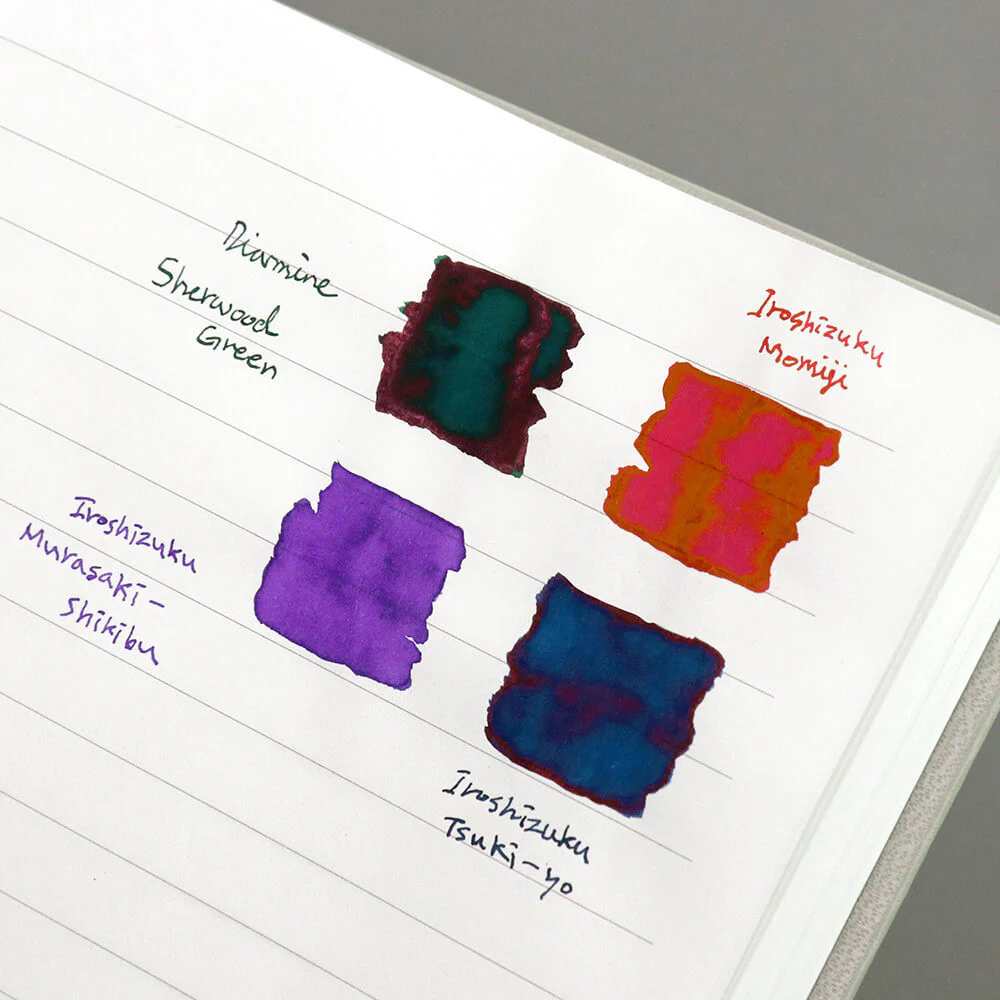 Diamine
Sherwood
Green
Iroshizuku
Momiji
Iroshizuku
Murasaki-
Shikibu
Iroshizuku
Tsuki-yo